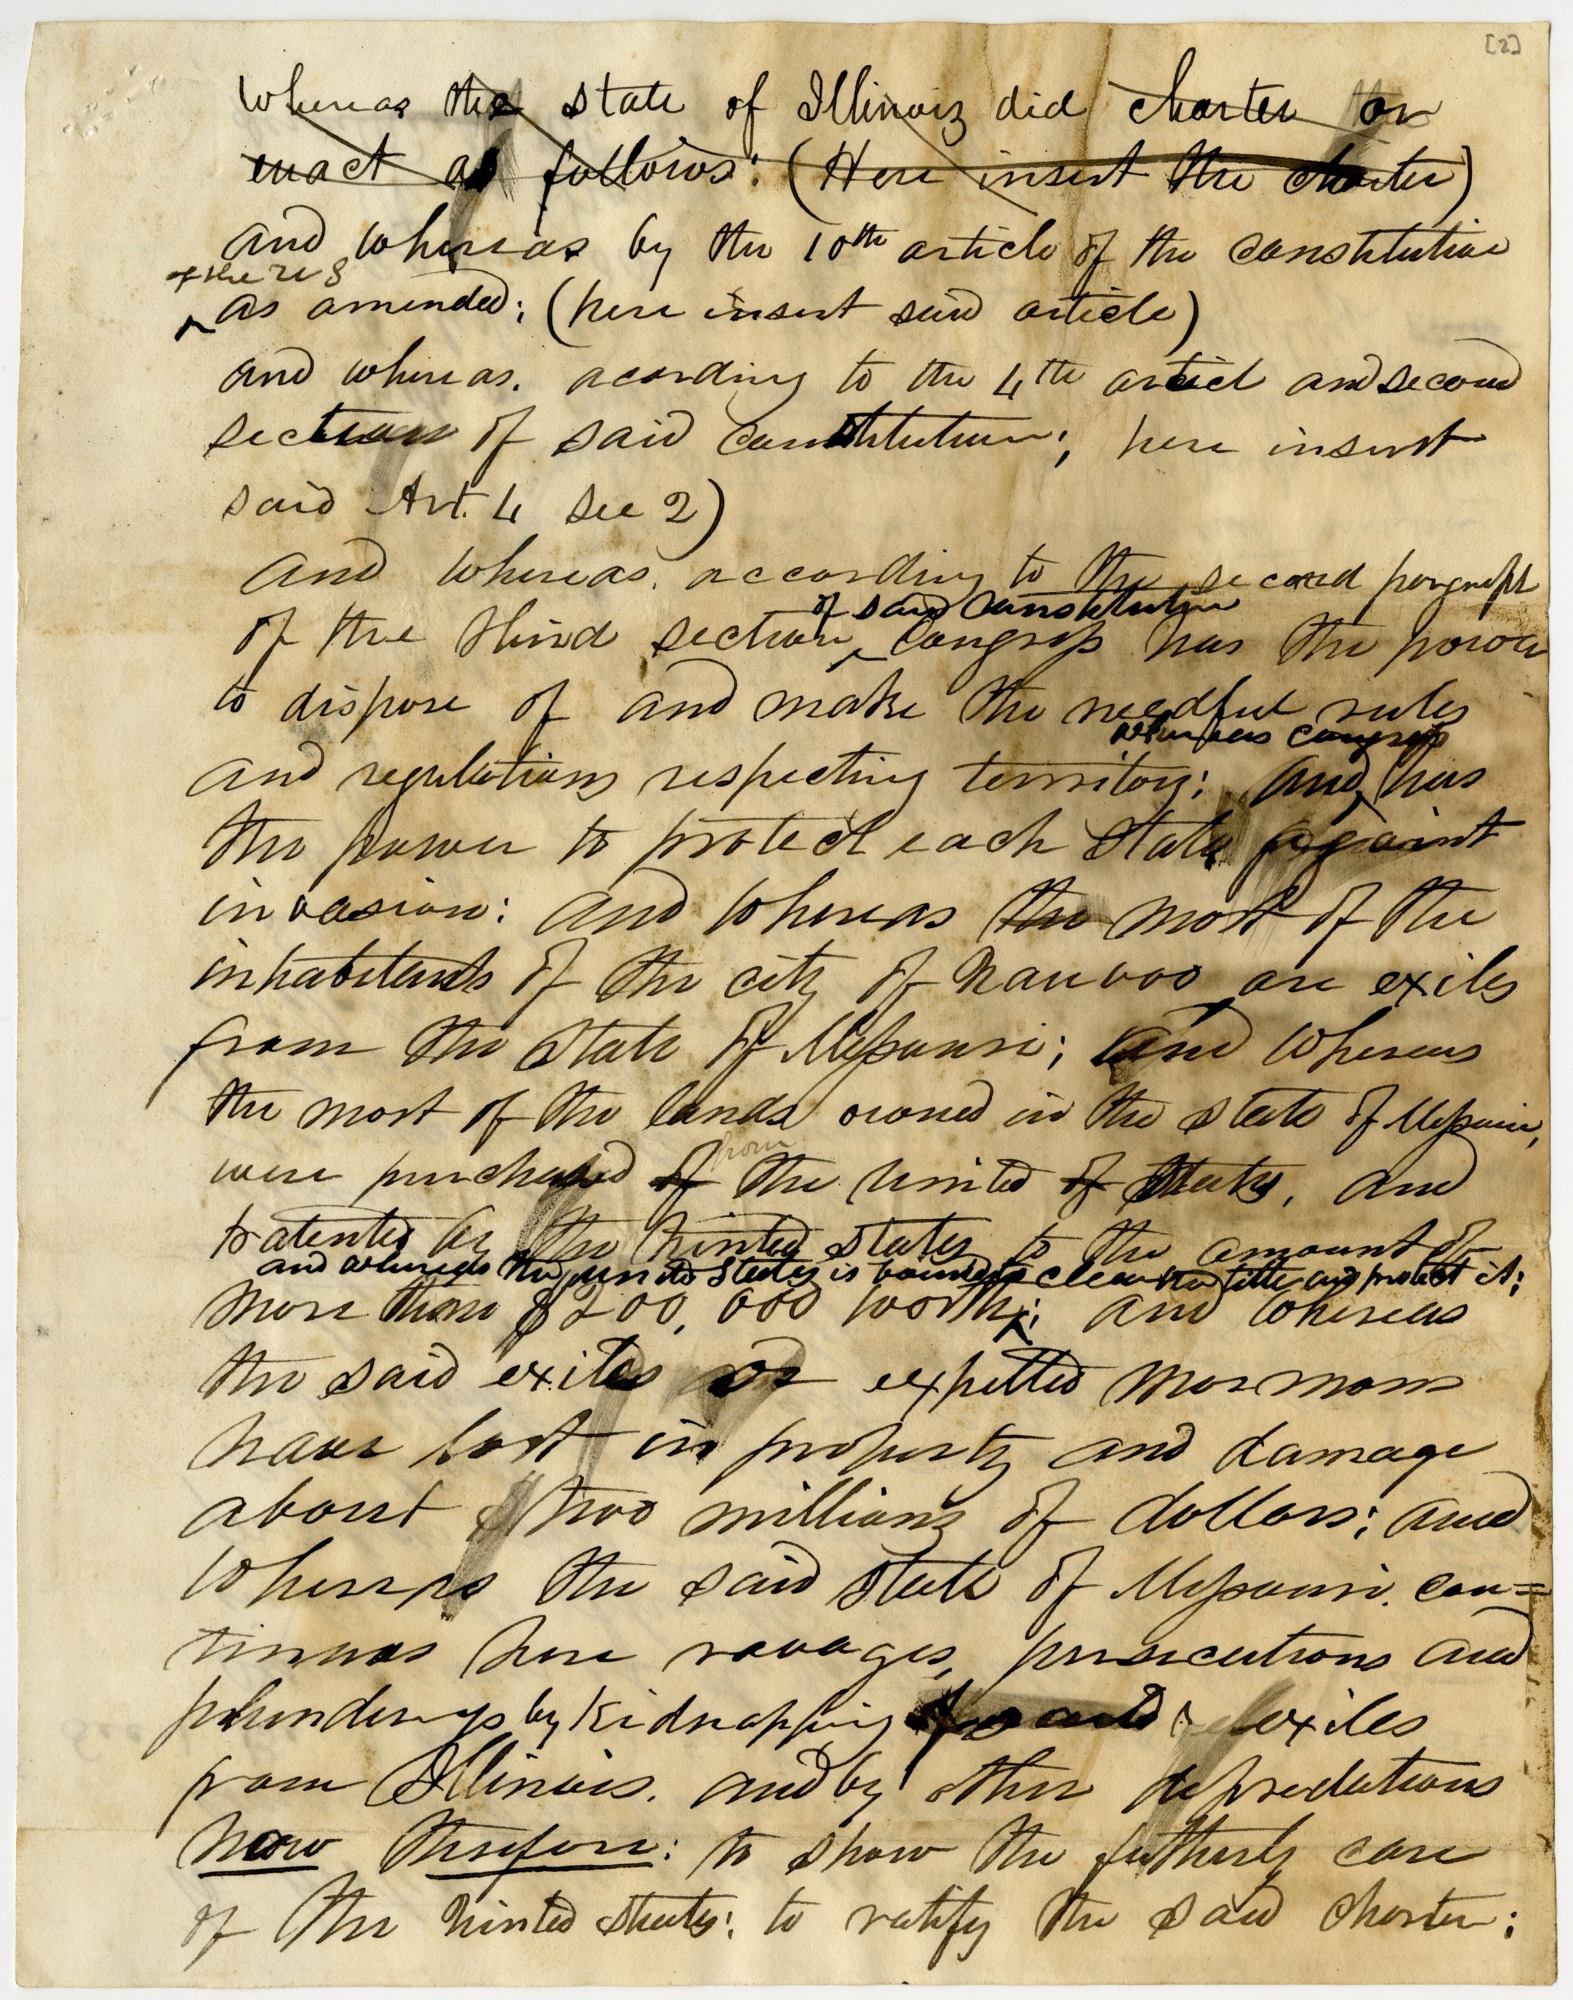 [2]
Whereas the state of Illinois did charter or
enact as follows: (Here insert the charter)
and whereas by the 10th article of the constitution
of the U S
as amended; (here insert said article)
and whereas. acording to the 4th articl and second
section of said constitution; here insert
said Art. 4 See 2)
and whereas. according to the second paragraph
of said Constitution
of the third section, Congress has the power
to dispose of and make the needful rules
whereas congress
and regulations respecting territory; and, has
the power to protect each state against
invasion: and whereas the most of the
inhabitants of the city of Nauvoo are exiles
from the state of Missouri; and whereas
the most of the lands owned in the state of Missouri,
from
were purchased of the United of States, and
patented by the United States to the amount of
and whereas the united States is bound to clear the title and protect it;
more than $200,000 worth; and whereas
the said exiles or expelled mormons
have lost in property and damage
about two millions of dollars; and
whereas the said state of Missouri. con=
tinues her ravages, persecutions and
plunderings by kidnapping exiles
from Illinois. and by other depredations
now therefore: to show the fatherly care
of the United States: to ratify the said charter;